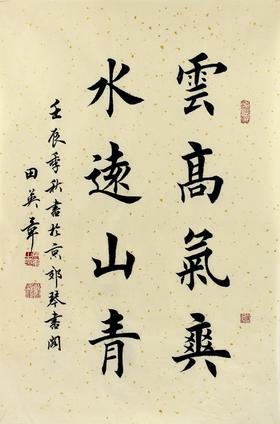 雲高氣爽
水遠山青
壬辰季秋書於京郊琴書閣
田英章